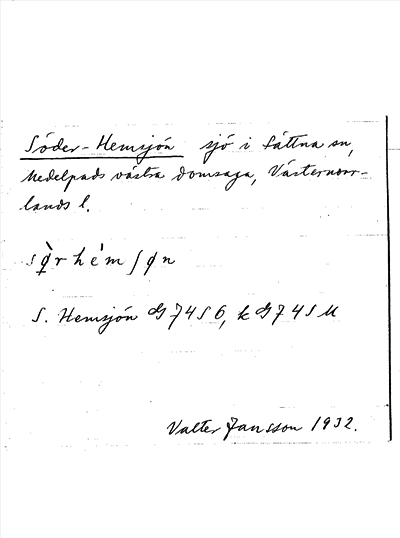 Söder-Hemsjön sjö i Sättna sn,
Medelpads västra domsaga, Västernorr-
lands l.
sø̀rhémʃøn
S. Hemsjön G 74 S 6, k G 74 S M
Valter Jansson 1932.